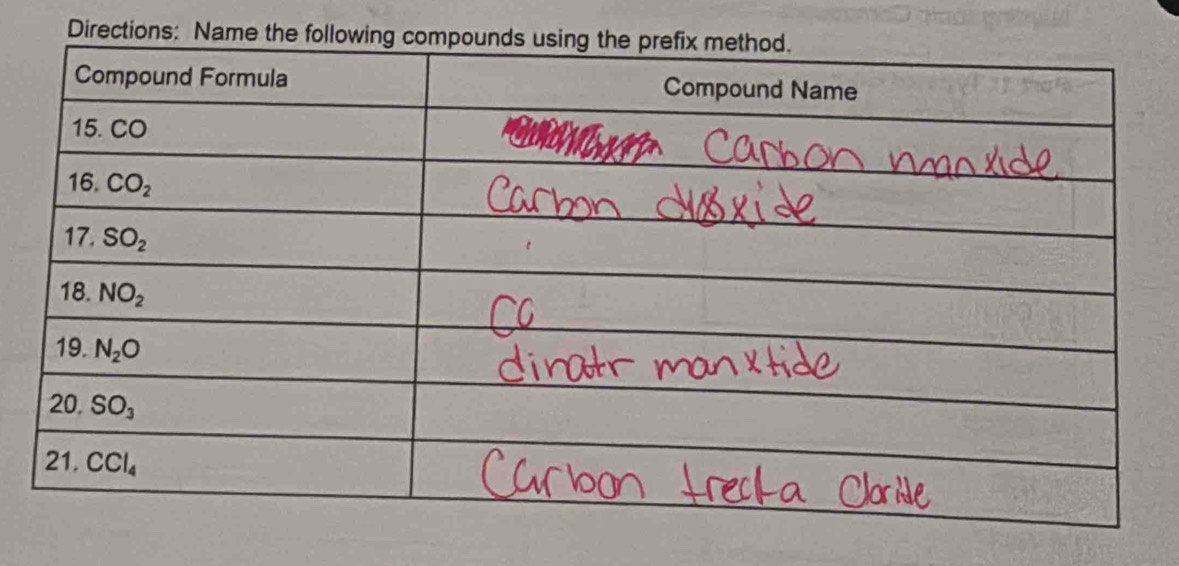 Directions: Name the following compounds using the prefix method.
Compound Formula Compound Name
15. CO Carbon manxide
16. CO₂ Carbon dioxide
17. SO₂
18. NO₂ CO
19. N₂O dinotr manxtide
20. SO₃
21. CCl₄ Carbon trecta Cloride